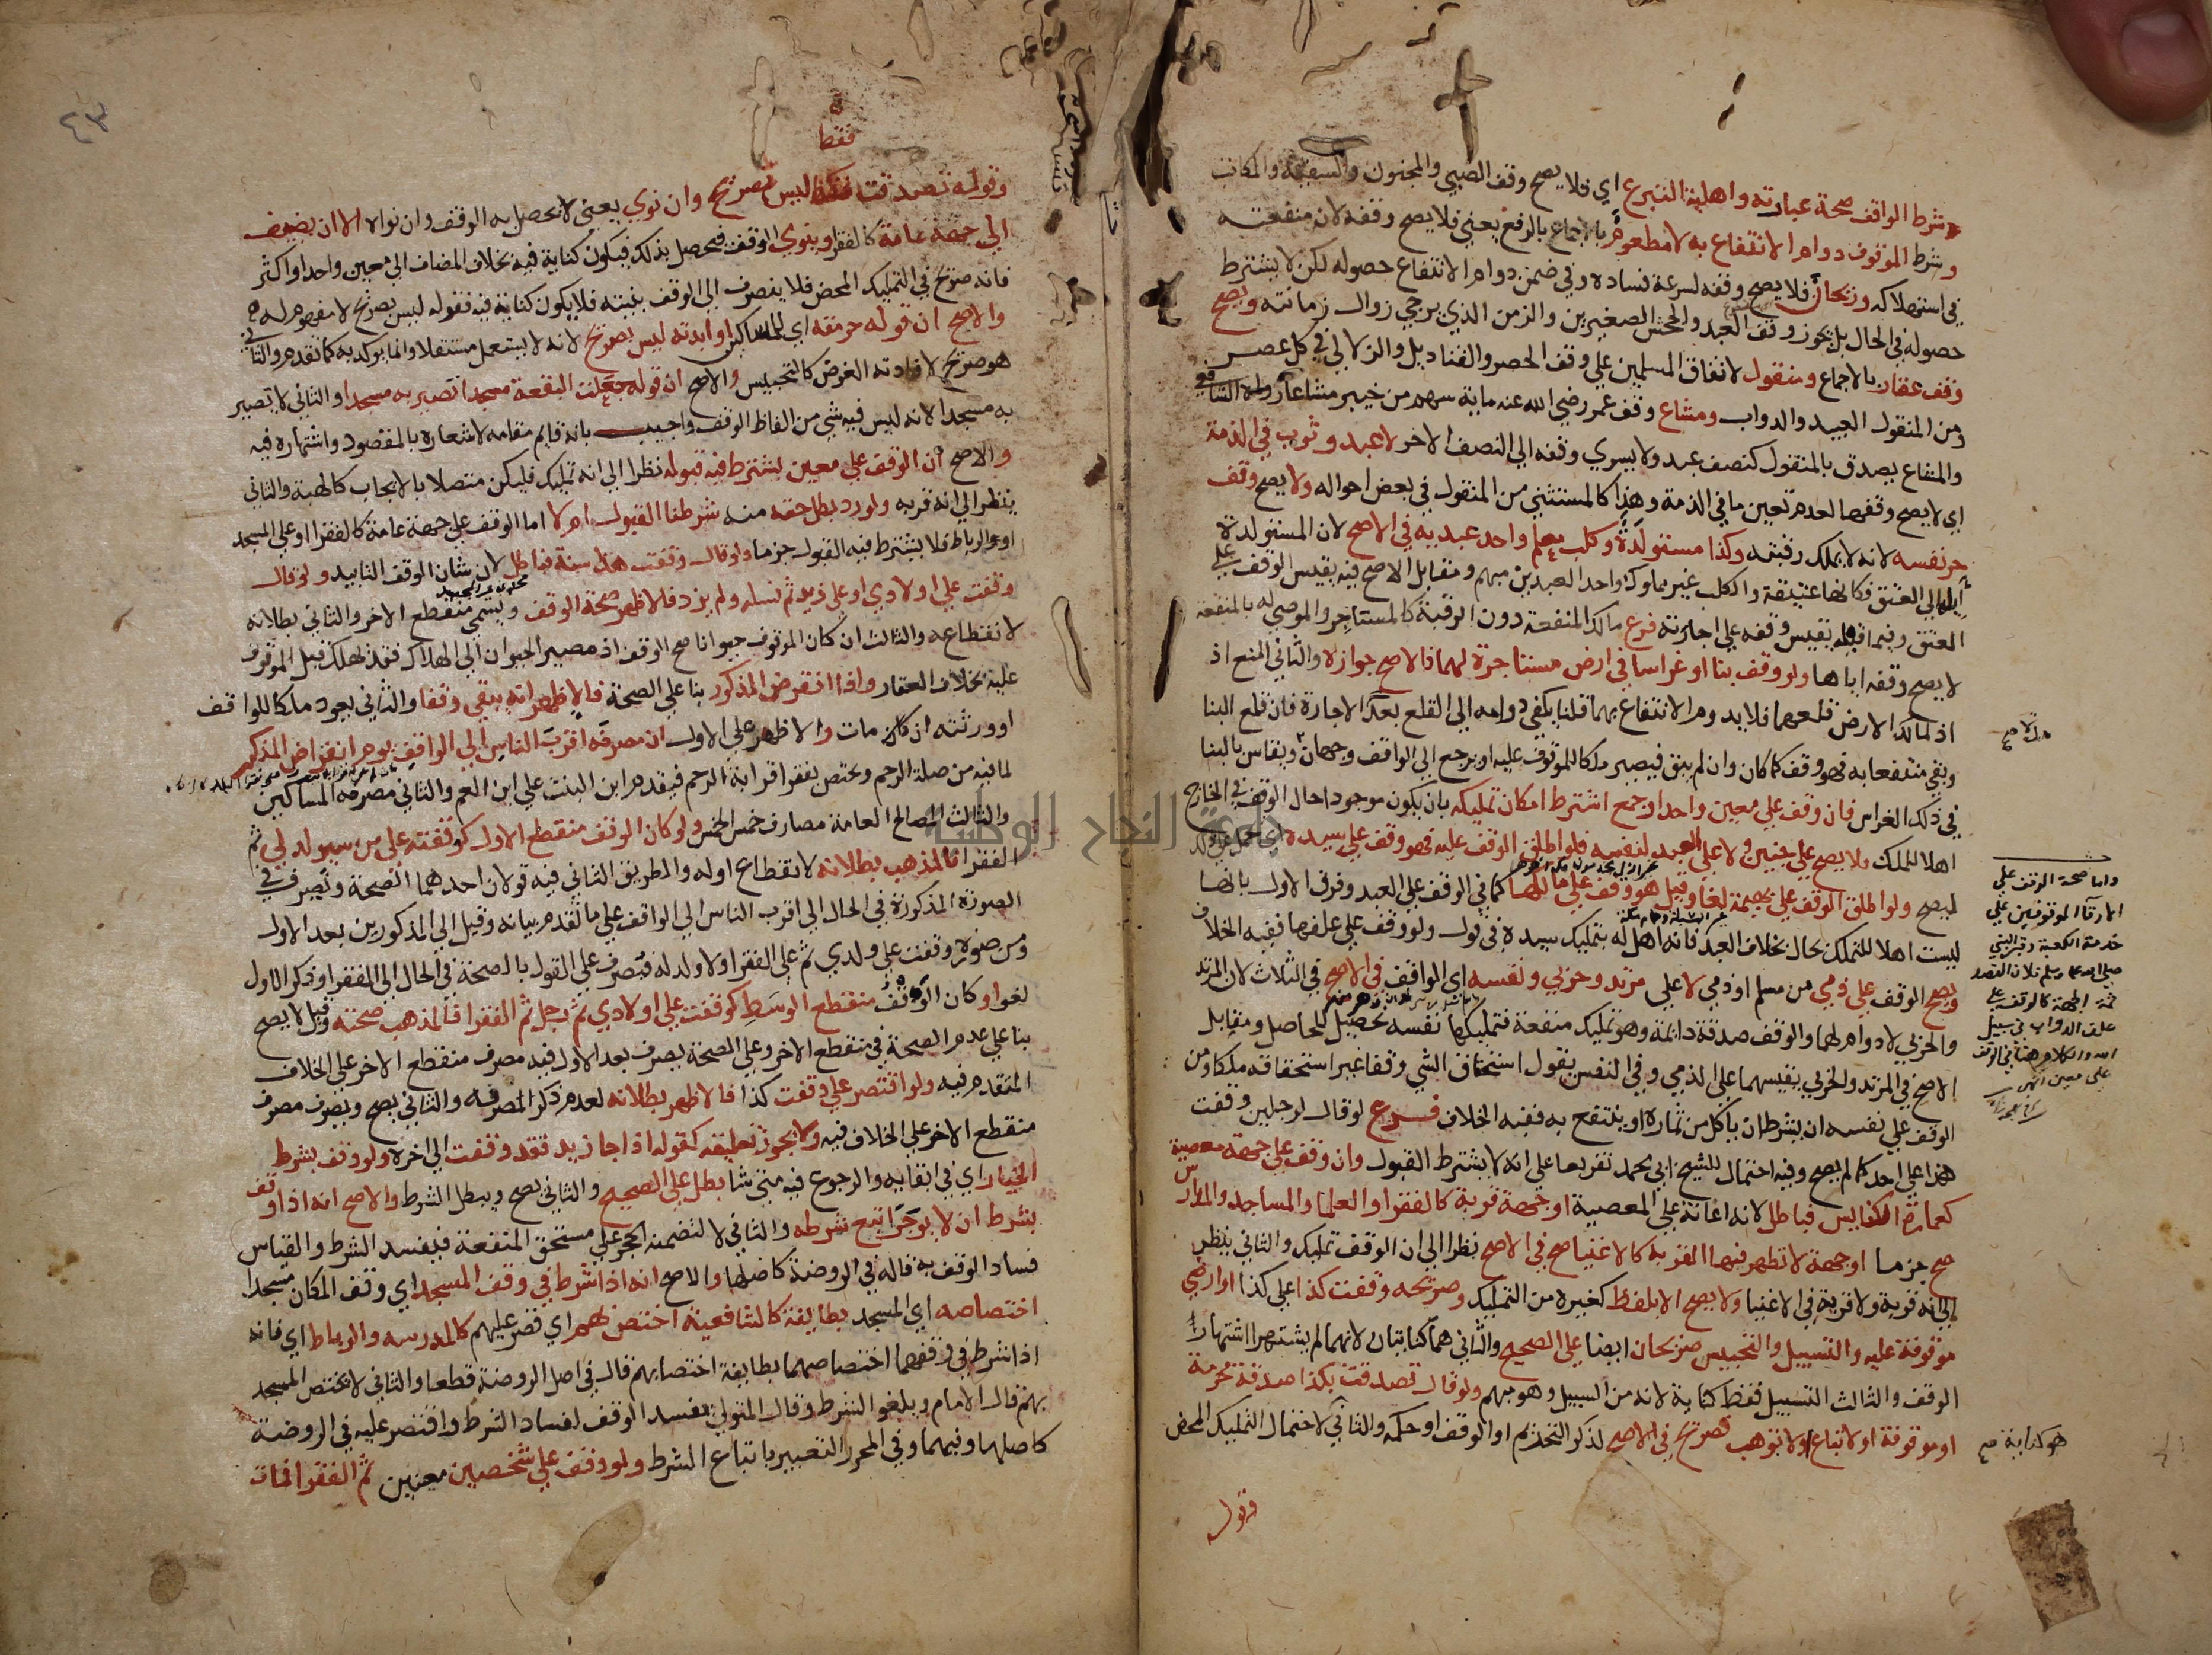 شرط الواقف صحة عبارته واهلية التبرع اي فلا يصح وقف الصبي والمجنون والسفيه والمكاتب
وشرط الموقوف دوام الانتفاع به لا مطعوم بالاجماع بالرفع يعني فلا يصح وقفه لان منفعته
في استهلاكه وريحان فلا يصح وقفه لسرعة فساده وفي ضمن دوام الانتفاع حصوله لكن لا يشترط
حصوله في الحال بل يجوز وقف العبد والجحش الصغيرين والزمن الذي يرجي زوال زمانته ويصح
وقف عقار بالاجماع ومنقول لاتفاق المسلمين علي وقف الحصر والقناديل والزلالي في كل عصر
ومن المنقول العبيد والدواب ومشاع وقف عمر رضي الله عنه ماية سهم من خيبر مشاعا رواه الشافعي
والمشاع يصدق بالمنقول كنصف عبد ولا يسري وقفه الي النصف الاخر لا عبد وثوب في الذمة
اي لا يصح وقفهما لعدم تعين ما في الذمة وهذا كالمستثني من المنقول في بعض احواله ولا يصح وقف
حر نفسه لانه لا يملك رقبته وكذا مستولدة وكلب معلم واحد عبديه في الاصح لان المستولدة
ايلة الي العتق فكانها عتيقة والكلب غير مملوك واحد العبدين مبهم ومقابل الاصح فيه يقيس الوقف علي
العتق وفيما قبله يقيس وقفه علي اجارته فرع مالك المنفعة دون الرقبة كالمستاجر والموصي له بالمنفعة
لا يصح وقفه اياها ولو وقف بنا او غراسا في ارض مستاجرة لهما فالاصح جوازه والثاني المنع اذ
اذ لمالك الارض قلعهما فلا يدوم الانتفاع بهما قلنا يكفي دوامه الي القلع بعد الاجارة فان قلع البنا
وبقي منتفعا به فهو وقف كما كان وان لم يبق فيصير ملكا للموقوف عليه او يرجع الي الواقف وجهان ويقاس بالبنا
في ذلك الغراس فان وقف علي معين واحد او جمع اشترط امكان تمليكه بان يكون موجودا حال الوقف في الخارج
اهلا للملك فلا يصح علي جنين ولا علي العبد لنفسه فلو اطلق الوقف عليه فهو وقف علي سيده
ليصح ولو اطلق الوقف علي بهيمة لغا وقيل هو وقف علي مالكها كما في الوقف علي العبد وفرق الاول بانها
ليست اهلا للتملك بحال بخلاف العبد فانه اهل له بتمليك سيده في قول ولو وقف علي علفها ففيه الخلاف
ويصح الوقف علي ذمي من مسلم او ذمي لا علي مرتد وحربي ونفسه اي الواقف في الاصح في الثلاث لان المرتد
والحربي لا دوام لهما والوقف صدقة دائمة وهو تمليك منفعة فتمليكها نفسه تحصيل للحاصل ومقابل
الاصح في المرتد والحربي يقيسهما علي الذمي وفي النفس يقول استحقاق الشي وقفا غير استحقاقه ملكا ومن
الوقف علي نفسه ان يشرط ان ياكل من ثماره او ينتفع به ففيه الخلاف فرع لو قال لرجلين وقفت
هذا علي احدكما لم يصح وفيه احتمال للشيخ ابي محمد تفريعا علي انه لا يشترط القبول وان وقف علي جهة معصية
كعمارة الكنايس فباطل لانه اعانة علي المعصية او جهة قربة كالفقرا والعلما والمساجد والمدارس
صح جزما او جهة لا تظهر فيها القربة كالاغنيا صح في الاصح نظرا الي ان الوقف تمليك والثاني ينظر
الي انه قربة ولا قربة في الاغنيا ولا يصح الا بلفظ كغيره من التمليك وصريحه وقفت كذا علي كذا او ارضي
موقوفة عليه والتسبيل والتحبيس صريحان ايضا علي الصحيح والثاني هما كنايتان لانهما لم يشتهرا اشتهار
الوقف والثالث التسبيل فقط كناية لانه من السبيل وهو مبهم ولو قال تصدقت بكذا صدقة محرمة
او موقوفة او لا تباع ولا توهب فصريح في الاصح لذكر التحريم او الوقف او حكمه والثاني لا لاحتمال التمليك المحض
واما صحة الوقف علي
الارقا الموقوفين علي
خدمة الكعبة وقبر النبي
صلي الله عليه وسلم فلان القصد
ثمة الجهة كالوقف علي
علف الدواب في سبيل
الله والكلام هنا في الوقف
علي معين انتهي
هو كناية صح
وقوله
٤٣
فقط
وقوله تصدقت فقط ليس بصريح وان نوي يعني لا يحصل به الوقف وان نواه الا ان يضيف
الي جهة عامة كالفقرا وينوي الوقف فيحصل بذلك فيكون كناية فيه بخلاف المضاف الي معين واحد او اكثر
فانه صريح في التمليك المحض فلا ينصرف الي الوقف بنيته فلا يكون كناية فيه فقوله ليس بصريح لا مفهوم له
والاصح ان قوله حرمته اي للمساكين او ابدته ليس بصريح لانه لا يستعمل مستقلا وانما يوكد به كما تقدم والثاني
هو صريح لافادته الغرض كالتحبيس والاصح ان قوله جعلت البقعة مسجدا تصير به مسجدا والثاني لا تصير
به مسجدا لانه ليس فيه شي من الفاظ الوقف واجيب بانه قايم مقامه لاشعاره بالمقصود واشتهاره فيه
والاصح ان الوقف علي معين يشترط فيه قبوله نظرا الي انه تمليك فليكن متصلا بالايجاب كالهبة والثاني
ينظر الي انه قربة ولو رد بطل حقه منه شرطنا القبول ام لا اما الوقف علي جهة عامة كالفقرا او علي المسجد
او الرباط فلا يشترط فيه القبول جزما ولو قال وقفت هذا سنة فباطل لان شان الوقف التابيد ولو قال
وقفت علي اولادي او علي زيد ثم نسله ولم يزد فالاظهر صحة الوقف ويسمي منقطع الاخر والثاني بطلانه
لانقطاعه والثالث ان كان الموقوف حيوانا صح الوقف اذ مصير الحيوان الي الهلاك فقد يهلك قبل الموقوف
عليه بخلاف العقار واذا انقرض المذكور بنا علي الصحة فالاظهر انه يبقي وقفا والثاني يعود ملكا للواقف
او ورثته ان كان مات والاظهر علي الاول ان مصرفه اقرب الناس الي الواقف يوم انقراض المذكور
لما فيه من صلة الرحم ويختص بفقرا قرابة الرحم فيقدم ابن البنت علي ابن العم والثاني مصرفه المساكين
والثالث المصالح العامة مصارف خمس الخمس ولو كان الوقف منقطع الاول كوقفته علي من سيولد لي ثم
الفقرا فالمذهب بطلانه لانقطاع اوله والطريق الثاني فيه قولان احدهما الصحة ويصرف في
الصورة المذكورة في الحال الي اقرب الناس الي الواقف علي ما تقدم بيانه وقيل الي المذكورين بعد الاول
ومن صوره وقفت علي ولدي ثم علي الفقرا ولا ولد له فيصرف علي القول بالصحة في الحال الي الفقرا وذكر الاول
لغو او كان الوقف منقطع الوسط كوقفت علي اولادي ثم رجل ثم الفقرا فالمذهب صحته وقيل لا يصح
بنا علي عدم الصحة في منقطع الاخر وعلي الصحة يصرف بعد الاول فيه مصرف منقطع الاخر علي الخلاف
المتقدم فيه ولو اقتصر علي وقفت كذا فالاظهر بطلانه لعدم ذكر المصرف والثاني يصح ويصرف مصرف
منقطع الاخر علي الخلاف فيه ولا يجوز تعليقه كقوله اذا جا زيد فقد وقفت الي اخره ولو وقف بشرط
الخيار اي في ابقايه والرجوع فيه متي شا بطل علي الصحيح والثاني يصح ويبطل الشرط والاصح انه اذا وقف
بشرط ان لا يوجر اتبع شرطه والثاني لا لتضمنه الحجر علي مستحق المنفعة فيفسد الشرط والقياس
فساد الوقف به قاله في الروضة كاصلها والاصح انه اذا شرط في وقف المسجد اي وقف المكان مسجدا
اختصاصه اي المسجد بطايفة كالشافعية اختص بهم اي قصر عليهم كالمدرسه والرباط اي فانه
اذا شرط في وقفهما اختصاصهما بطايفة اختصا بهم قال في اصل الروضة قطعا والثاني لا يختص المسجد
بهم قال الامام ويلغو الشرط وقال المتولي يفسد الوقف لفساد الشرط واقتصر عليه في الروضة
كاصلها وفيهما وفي المحرر التعبير باتباع الشرط ولو وقف علي شخصين معينين ثم الفقرا فمات